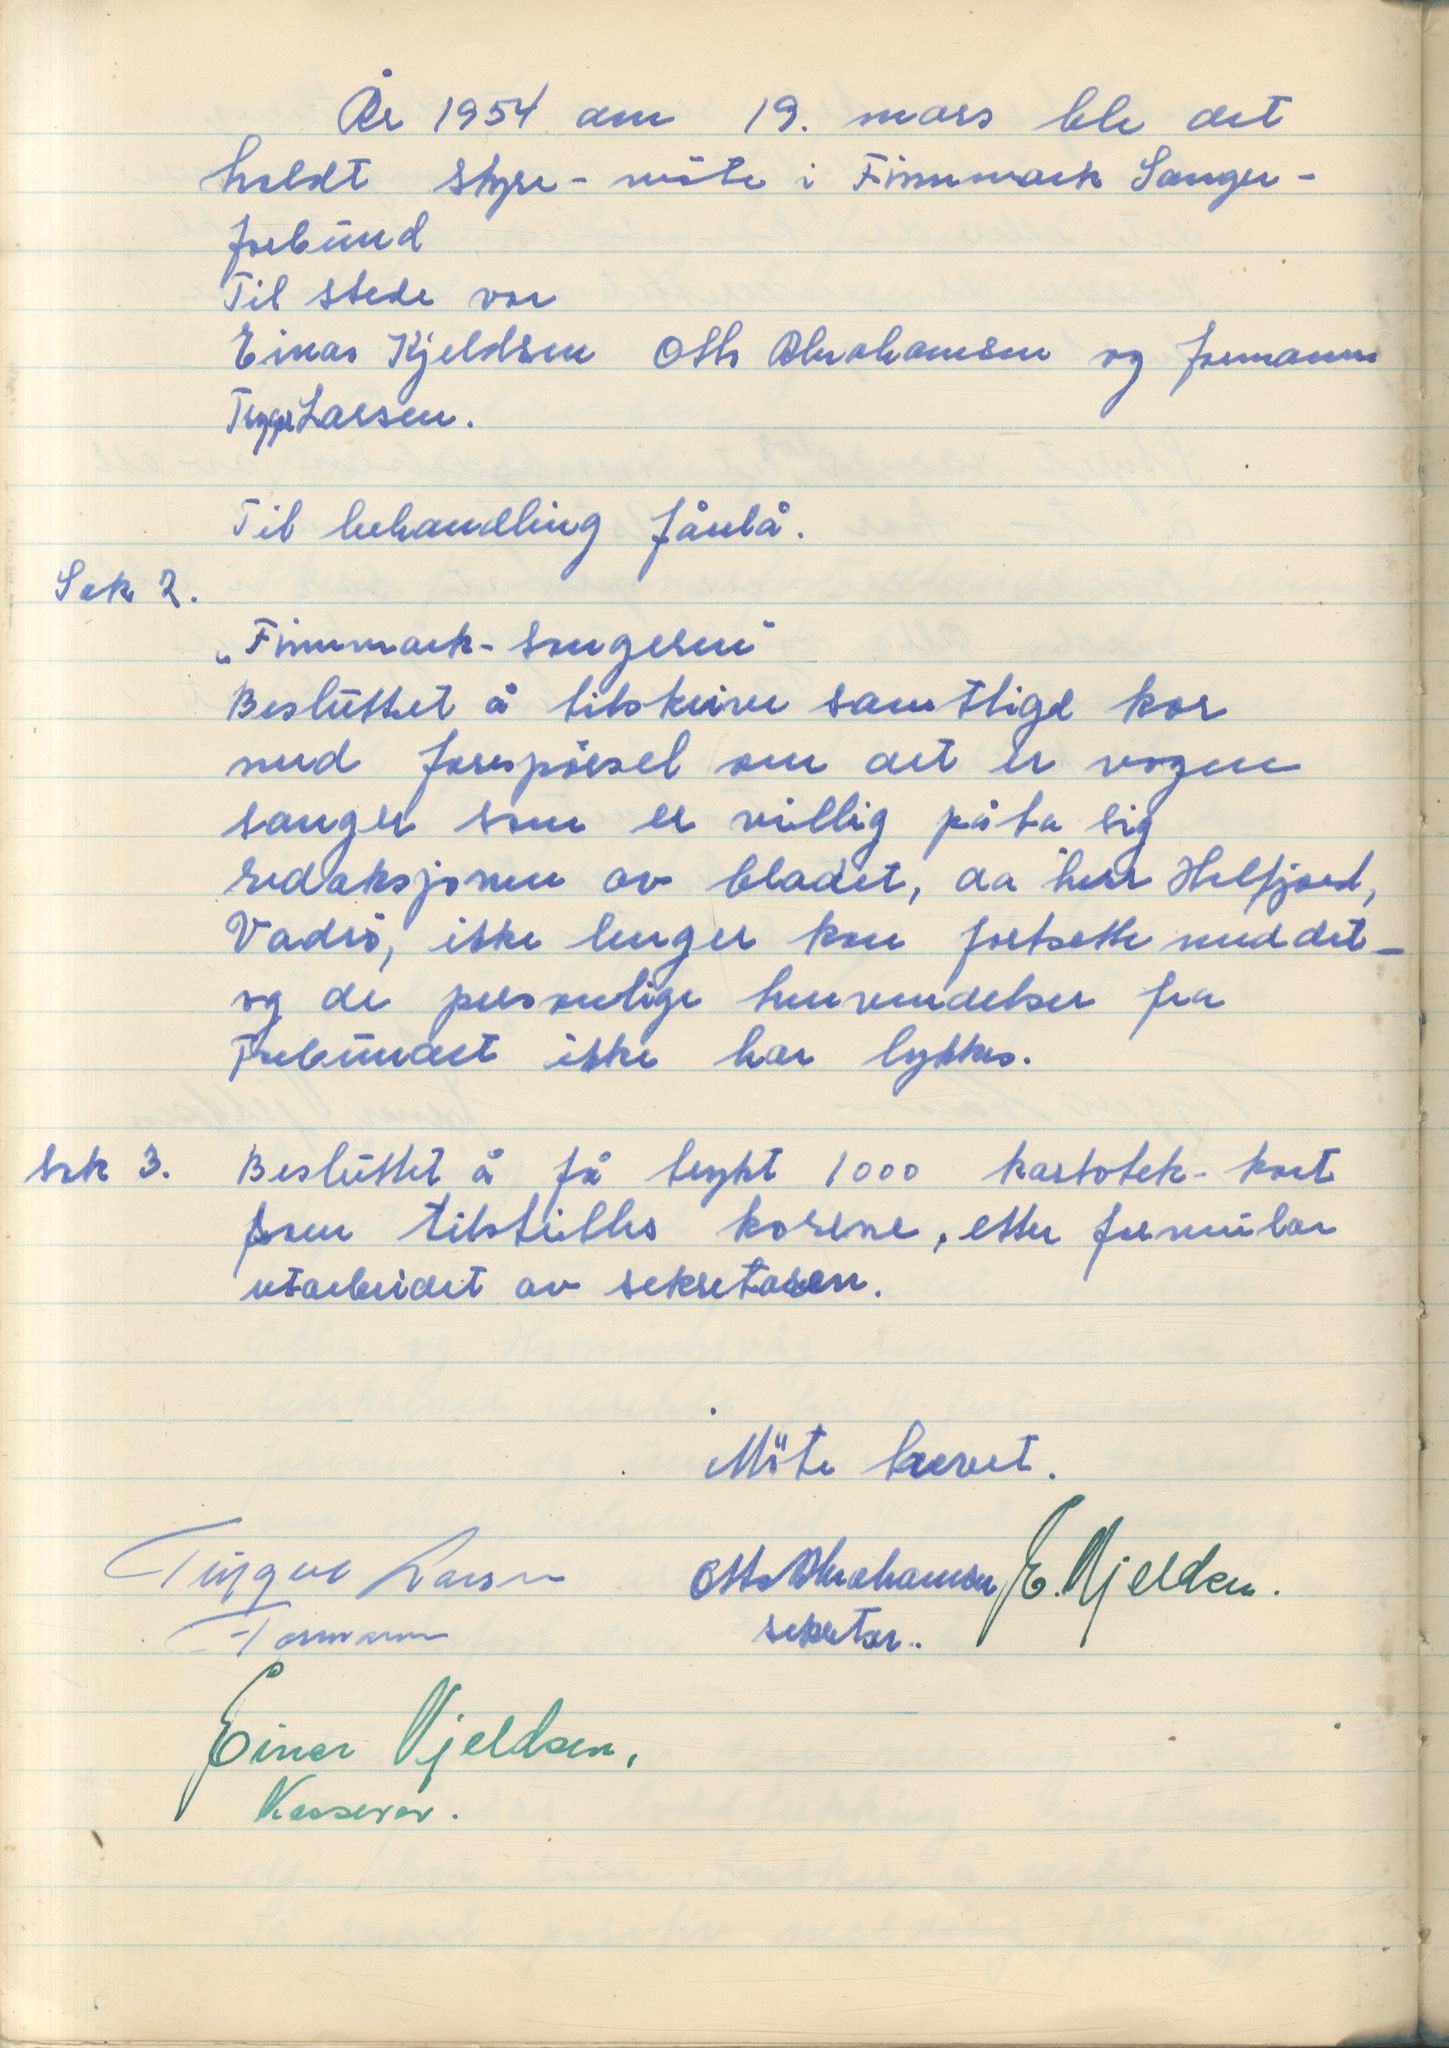 År 1954 den 19. mars ble det
holdt styre-möte i Finnmark Sanger-
forbund
Til stede var
Einar Kjeldsen Otto Abrahamsen og formann
Trygve Larsen.
Til behandling forelå.
Sak 2.
„Finnmark-sangeren"
Besluttet å tilskrive samtlige kor
med forespörsel om det er nogen
sanger som er villig påta sig
redaksjonen av bladet, da herr Helfjord,
Vadsö, ikke lenger kan fortsette med det-
og de personlige henvendelser fra
Forbundet ikke har lykkes.
Sak 3. Besluttet å få trykt 1000 kartotek-kort
som tilstilles korene, etter formular
utarbeidet av sekretæren.
Möte hevet.
Trygve Larsen Otto Abrahamsen E. Kjeldsen.
Formann sekretær.
Einar Kjeldsen,
Kasserer.